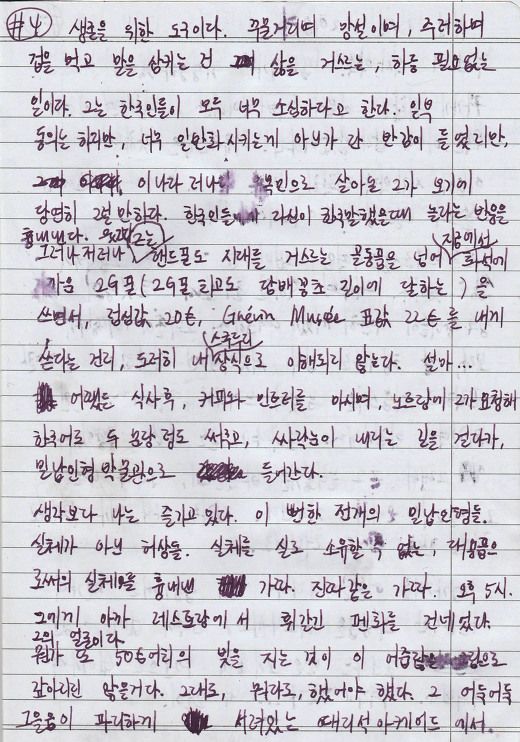 #4 생존을 위한 도구이다. 꾸물거리며 망설이며, 주저하며
겁을 먹고 말을 삼키는 건 삶을 거스르는, 하등 필요없는
일이다. 그는 한국인들이 모두 너무 소심하다고 한다. 일부
동의는 하지만, 너무 일반화시키는게 아닌가 란 반감이 들었지만,
이나라 저나라 으로 살아온 그가 보기에
당연히 그럴만하다. 한국인들에게 자신이 한국말했을때 놀라는 반응을
흉내낸다. 그는
그러나저러나 핸드폰도 시대를 거스르는 골동품을 넘어 지금에선 화석에
가까운 2G폰(2G폰이라고도 담배꽁초 길이에 달하는)을
쓰면서, 점심값 20€, Grévin Musée 표값 22€를 내게
쓴다는 건지, 도저히 내 스크루지 상식으로 이해되지 않는다. 설마...
어쨌든 식사후, 커피와 인트러를 마시며, 노르망에 그가 요청해
한국어로 두 문장 정도 써주고, 싸락눈이 내리는 길을 걷다가,
밀납인형 박물관으로 들어간다.
생각보다 나는 즐기고 있다. 이 뻔한 전개의 밀납인형들.
실체가 아닌 허상들. 실체를 실로 소유할 수 없는, 대용품으
로써의 실체를 흉내낸 가짜. 진짜같은 가짜. 오후 5시.
그에게 아까 레스토랑에서 쥐어간 지폐를 건네었다.
그의 얼굴이다.
뭔가 또 50€어치의 빚을 지는 것이 이 어줍잖은 그림으로
갚아지진 않을거다. 그대로, 뭐라도, 했어야 했다. 그 어둑어둑
그을음이 파리하게 서려있는 대리석 아케이드에서.